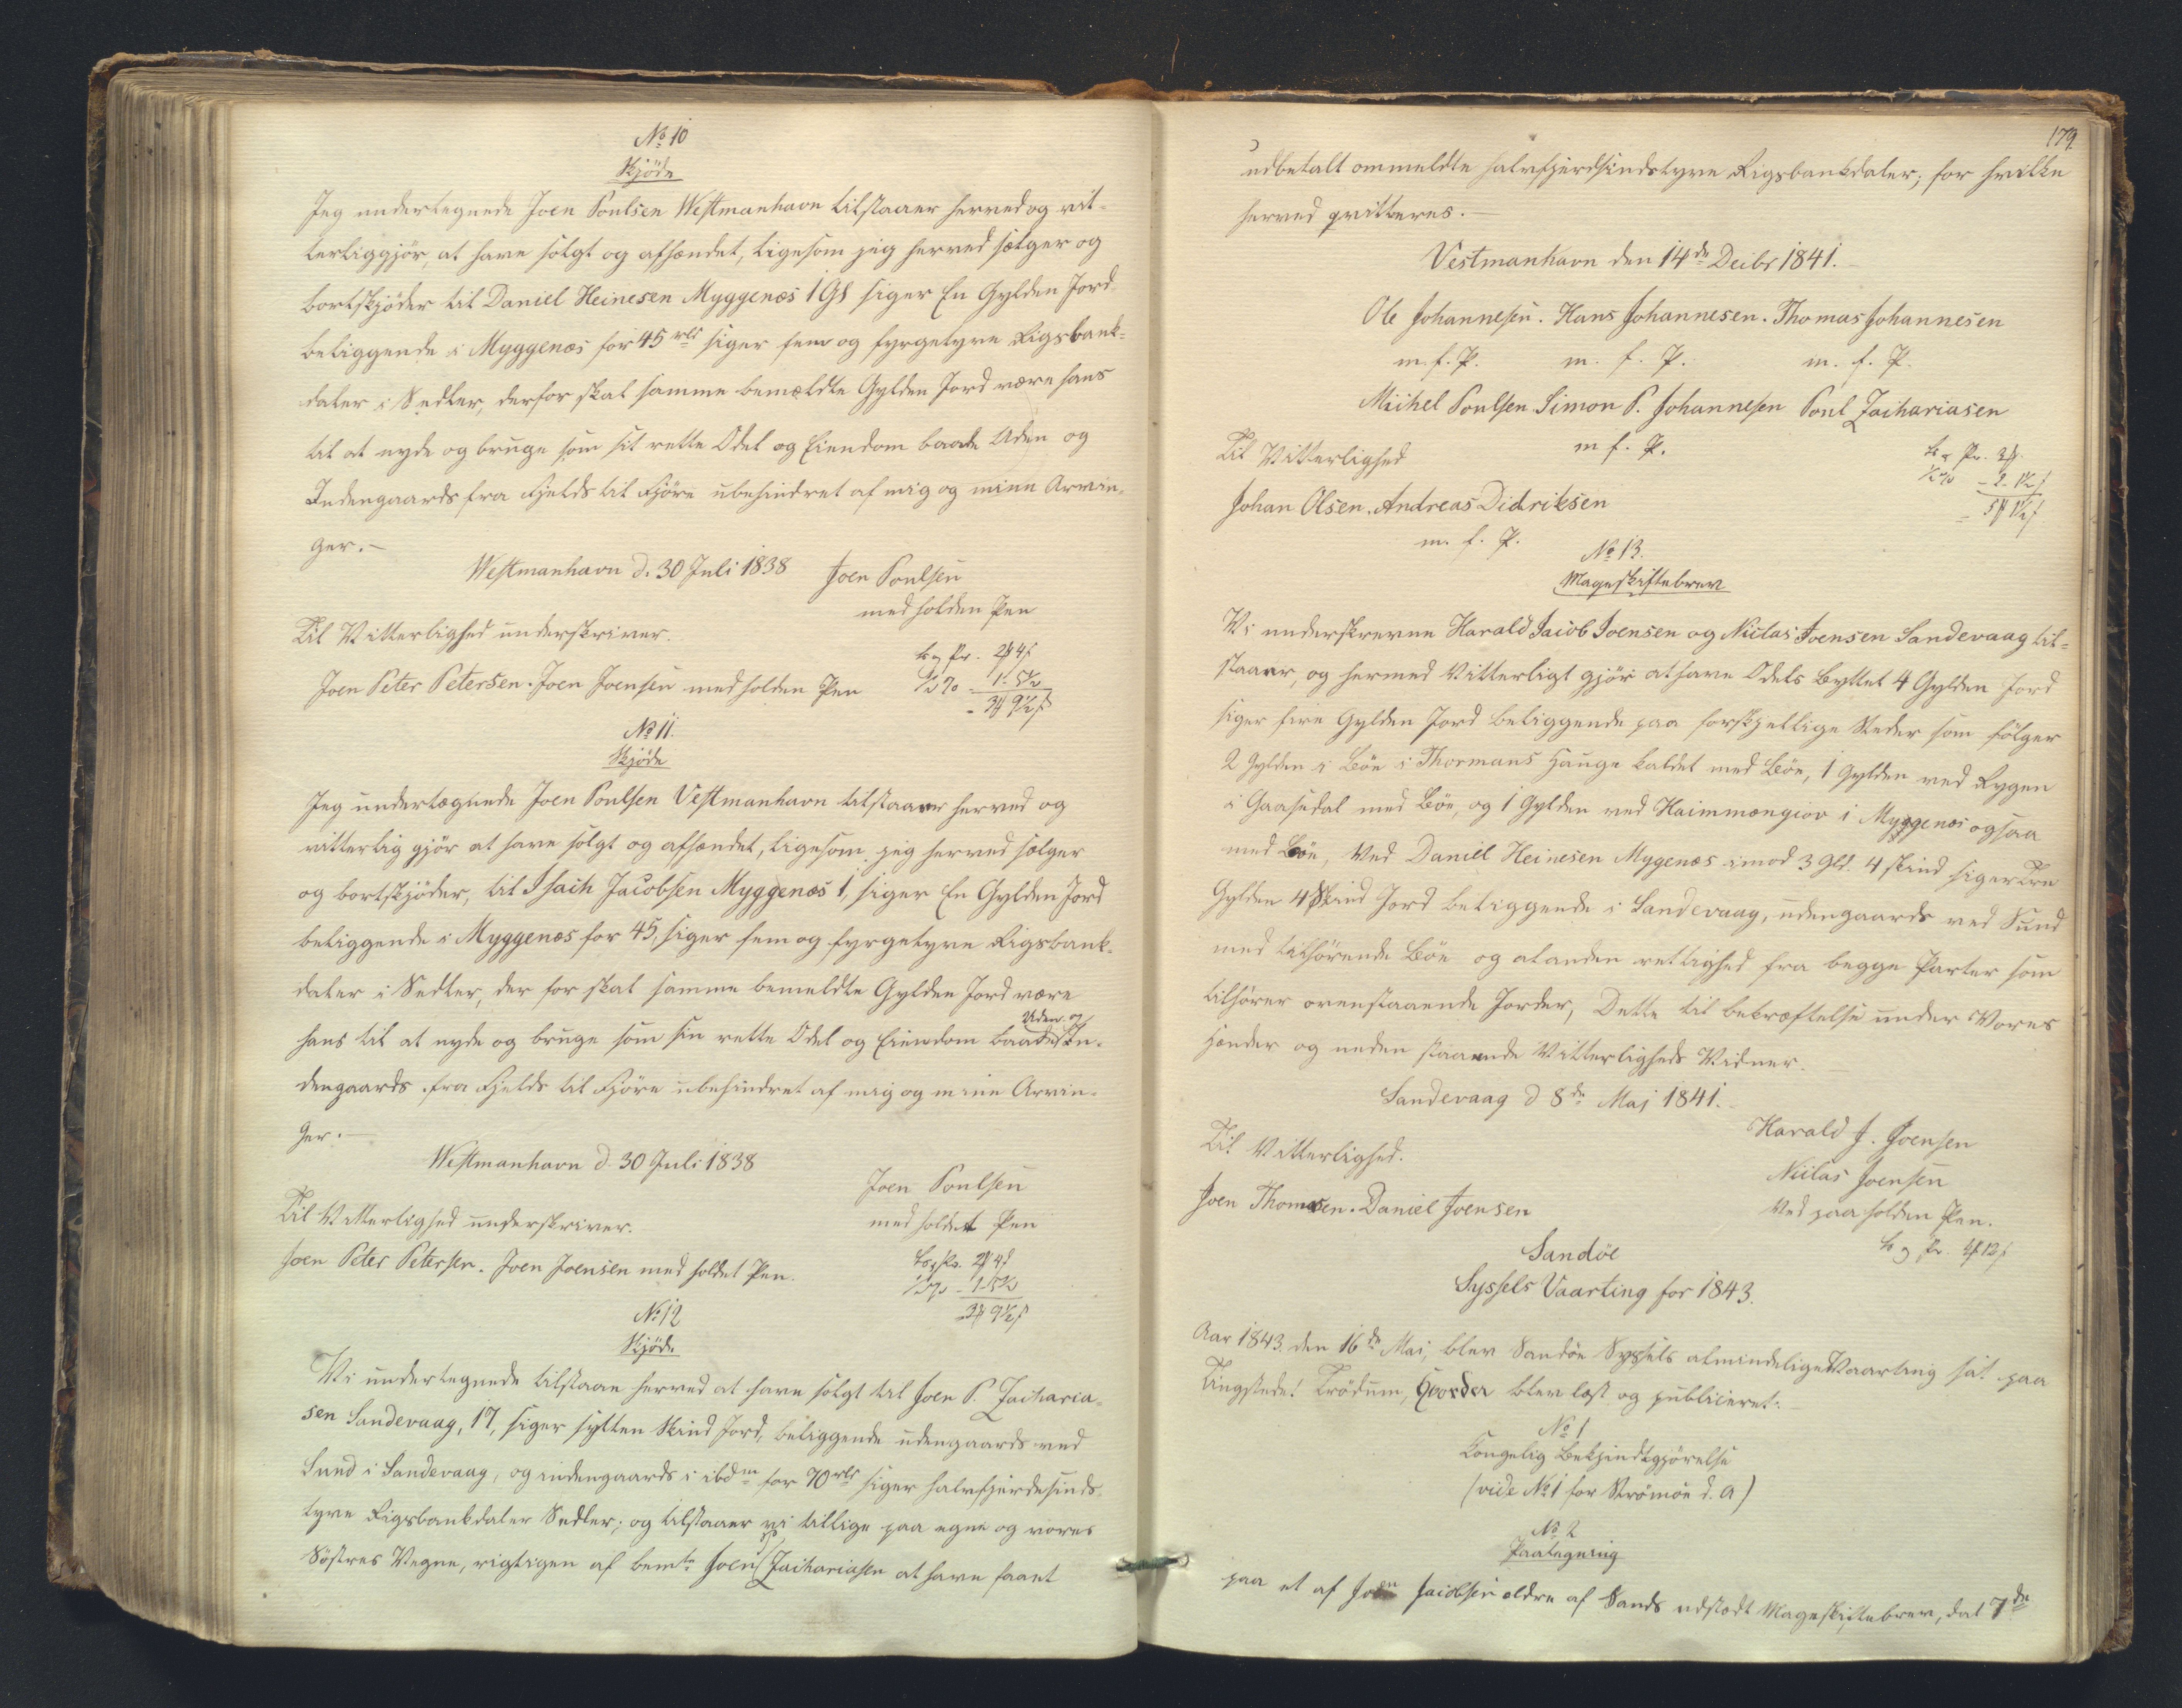 No 10
Skjöde
Jeg undertegnede Joen Poulsen Westmanhavn tilstaaer herved og vit-
terliggjör, at have solgt og afhændet, ligesom jeg herved sælger og
bortskjöder til Daniel Heinesen Myggenæs 1 Gl siger En Gylden Jord
beliggende i Myggenæs for 45 rbd siger fem og fyrgetyve Rigsbank-
daler i Sedler, derfor skal samme bemældte Gylden Jord være hans
til at nyde og bruge som sit rette Odel og Eiendom baade Uden og
Indengaards fra Fjelds til Fjöre ubehindret af mig og mine Arvin-
ger.-
Westmanhavn d. 30 Juli 1838 Joen Poulsen
med holden Pen
Til Vitterlighed underskriver.
Joen Peter Petersen. Joen Joensen med holden Pen
No 11.
Skjöde
Jeg undertægnede Joen Poulsen Vestmanhavn tilstaaer herved og
vitterlig gjör at have solgt og afhændet, ligesom jeg herved sælger
og bortskjöder, til Isach Jacobsen Myggenæs 1, siger En Gylden Jord
beliggende i Myggenæs for 45, siger fem og fyrgetyve Rigsbank-
daler i Sedler, der for skal samme bemeldte Gylden Jord være
hans til at nyde og bruge som sin rette Odel og Eiendom baade Uden og In-
dengaards fra Fjelds til Fjöre ubehindret af mig og mine Arvin-
ger.-
Westmanhavn d 30 Juli 1838
Joen Poulsen
med holdet Pen
Til Vitterlighed underskriver.
Joen Peter Petersen. Joen Joensen med holdet Pen.
No 12
Skjöde
Vi undertegnede tilstaae herved at have solgt til Joen P. Zacharia-
sen Sandevaag, 17, siger sytten Skind Jord, beliggende udengaards ved
Sund i Sandevaag, og indengaards i ibdm for 70 rbd siger halvfjerdesinds-
tyve Rigsbankdaler Sedler; og tilstaaer vi tillige paa egne og vores
Söstres Vegne, rigtigen af bemte Joen P Zachariasen at have faaet
179
udbetalt ommeldte halvfjerdsindstyve Rigsbankdaler; for hvilke
herved qvitteres.-
Vestmanhavn den 14de Decbr 1841.
Ole Johannesen. Hans Johannesen. Thomas Johannesen
m. f. P. m. f. P. m. f. P.
Michel Poulsen Simon P. Johannesen Poul Zachariasen
m f. P.
Til Vitterlighed
Johan Olsen. Andreas Didriksen
m. f. P.
No 13.
Mageskiftebrev
Vi underskrevne Harald Jacob Joensen og Niclas Joensen Sandevaag til-
staaer, og hermed Vitterligt gjör at have Odels Byttet 4 Gylden Jord
siger fire Gylden Jord beliggende paa forskjellige Steder som fölger
2 Gylden i Böe i Thormans Hauge kaldet med Böe, 1 Gylden ved Rygen
i Gaasedal med Böe, og 1 Gylden ved Haimmængiov i Myggenæs ogsaa
med Böe, Ved Daniel Heinesen Mygenæs imod 3 Gld. 4 skind siger Tre
Gylden 4 Skind Jord beliggende i Sandevaag, udengaards ved Sund
med tilhörende Böe og al anden rettighed fra begge Parter som
tilhörer ovenstaaende Jorder, Dette til bekræftelse under Vores
Hænder og neden staaende Vitterligheds Vidner.
Sandevaag d 8de Maj 1841.
Harald J. Joensen
Til Vitterlighed.
Niclas Joensen
Joen Thomsen. Daniel Joensen
Ved paa holden Pen.
Sandöe
Syssels Vaarting for 1843.
Aar 1843. den 16de Mai, blev Sandöe Syssels almindelige Vaarting sat paa
Tingstedet Trödum, hvorder blev læst og publiceret:-
No 1
Kongelig Bekjendtgjörelse
(vide No 1 for Strömöe d. A)
No 2
Paategning
paa et af Joen Jacobsen ældre af Sands udstedt Mageskiftebrev, dat 7de